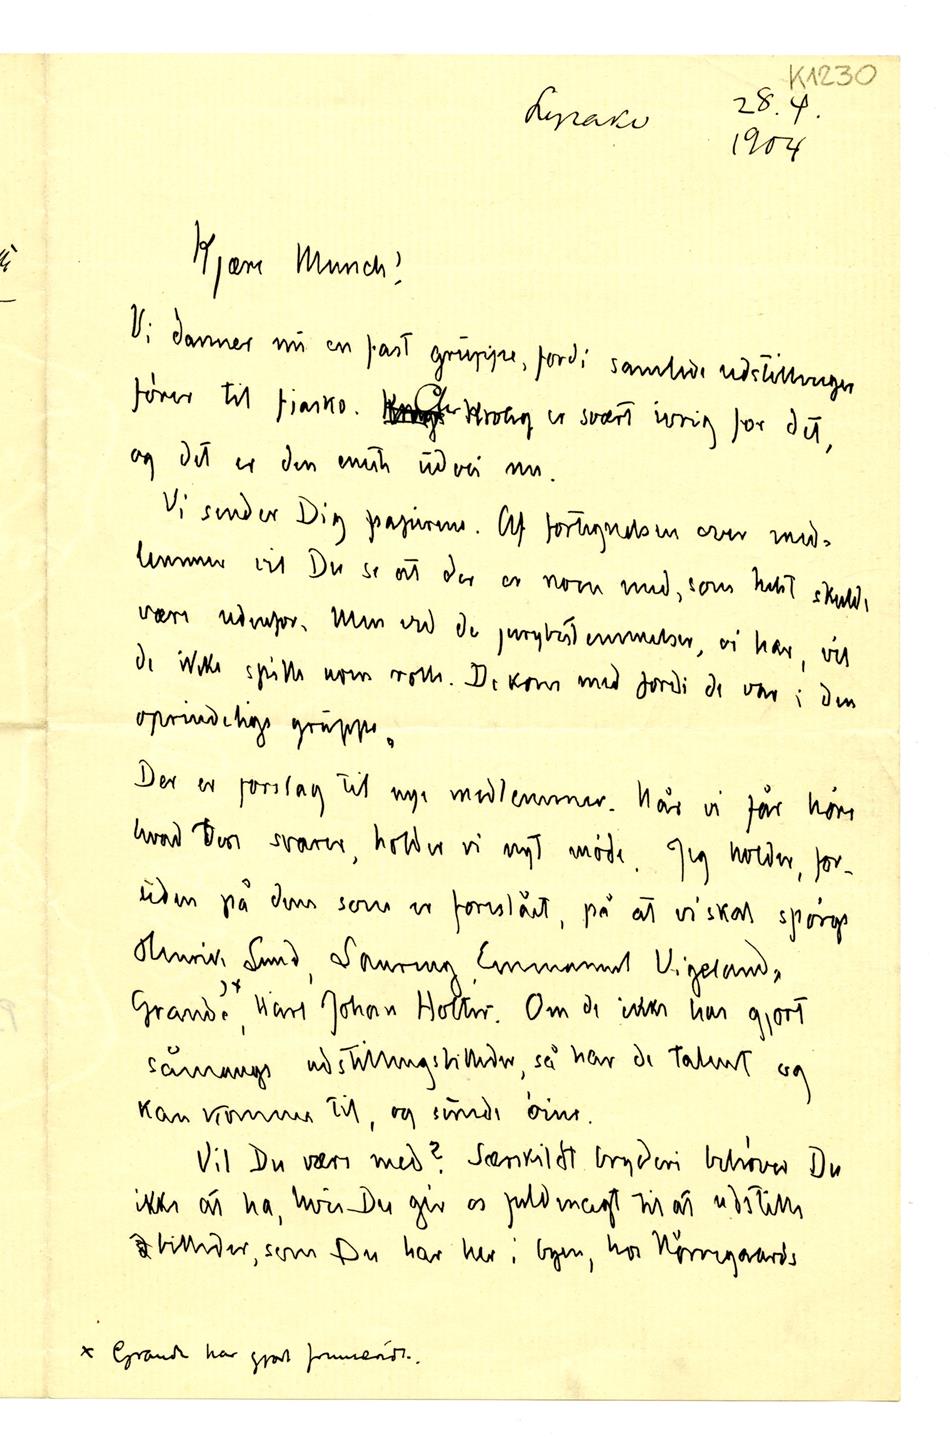 K1230
Lysaker 28.4.
1904
Kjære Munch!
Vi danner nu en fast gruppe, fordi samlede udstillinger
fører til fiasko. Chr Krohg er svært ivrig for det,
og det er den eneste udvei nu.
Vi sender Dig papirerne. Af fortegnelsen over med-
lemmer vil Du se at der er noen med, som helst skulde
være udenfor. Men ved de jurybestemmelser, vi har, vil
de ikke spille noen rolle. De kom med fordi de var i den
oprindelige gruppe.
Der er forslag til nye medlemmer. Når vi får høre
hvad Den svarer, holder vi nyt møde. Jeg holder, for-
uden på dem som er foreslået, på at vi skal spørge
Henrik Lund, Lauring, Emmanuel Vigeland,
Grande,x) Karl Johan Holter. Om de ikke har gjort
såmange udstillingsbilleder, så har de talent og
kan komme til, og sunde øine.
Vil Du være med? Særskildt bryderi behøver Du
ikke at ha, hvis Du gir os fuldmagt til at udstille
billeder, som Du har her i byen, hos Nørregaards
x Grande har gjort